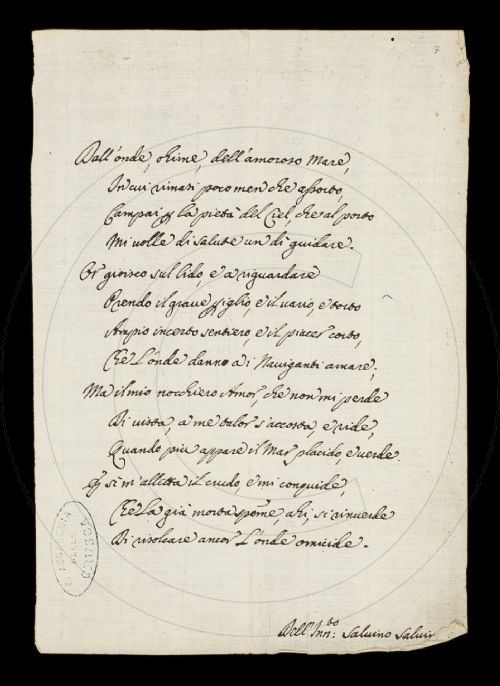 Dall'onde, ohime, dell'amoroso Mare,
In cui rimasi poco men che assorto,
Campai p la pietà del Ciel, che al porto
Mi volle di salute un dì guidare.
Or gioisco sul lido, e a riguardare
Prendo il grave periglio, e il vario, e torto
Ampio incerto sentiero, e il piacer corto,
Che l'onde danno a i Naviganti amare;
Ma il mio nocchiero Amor, che non mi perde
Di vista, a me talor s'accosta, e ride,
Quando più appare il Mar placido, e verde.
E sì m'alletta il crudo, e mi conquide,
Che la già morta speme, ahi, si rinverde
Di risolcare ancor l'onde omicide.
Dell'Inn:to Salvino Salvin